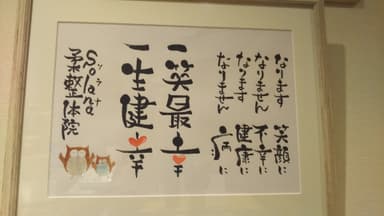 なります 笑顔に
なりません 不幸に
なります 健康に
なりません 病に
一笑最幸
一生健幸
ソラナ
Solana
柔整体院